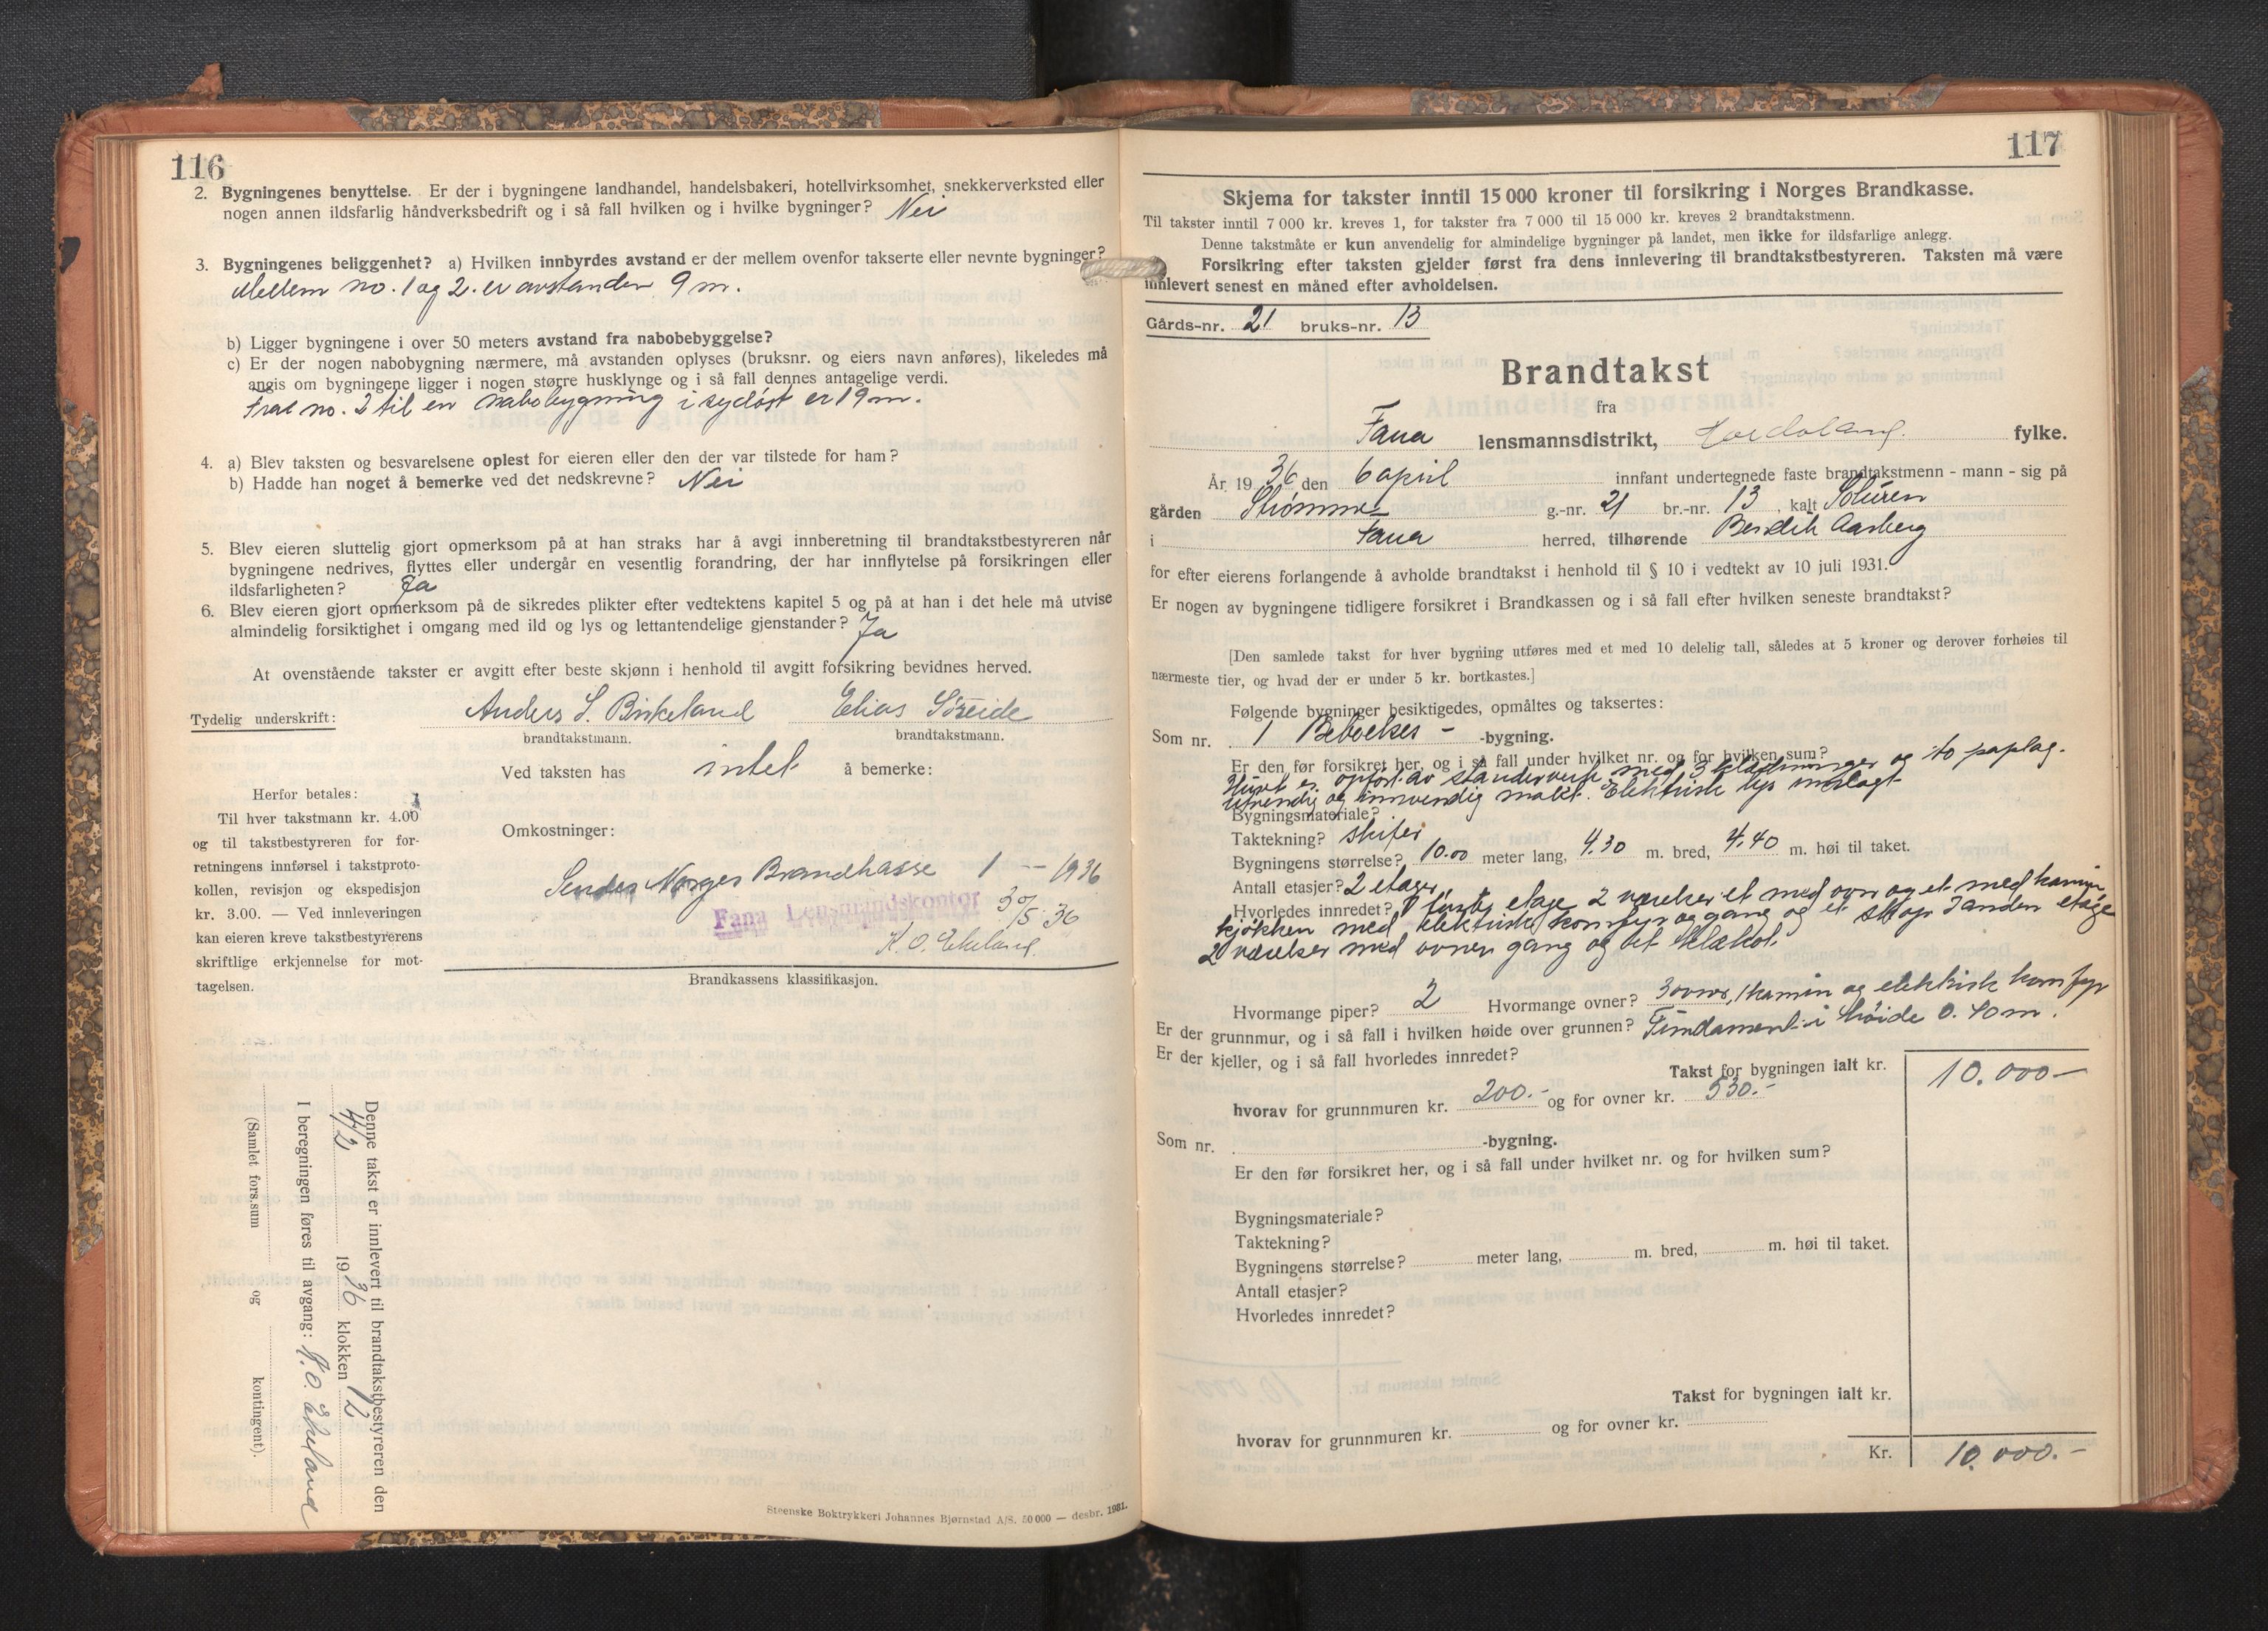 116
2. Bygningenes benyttelse. Er der i bygningene landhandel, handelsbakeri, hotellvirksomhet, snekkerverksted eller
nogen annen ildsfarlig håndverksbedrift og i så fall hvilken og i hvilke bygninger? Nei
3. Bygningenes beliggenhet? a) Hvilken innbyrdes avstand er der mellem ovenfor takserte eller nevnte bygninger?
Mellem no. 1 og 2. er avstanden 9 m.
b) Ligger bygningene i over 50 meters avstand fra nabobebyggelse?
c) Er der nogen nabobygning nærmere, må avstanden oplyses (bruksnr. og eiers navn anføres), likeledes må
angis om bygningene ligger i nogen større husklynge og i så fall dennes antagelige verdi.
Fra no. 2 til en nabobygning i sydöst er 19 m.
4. a) Blev taksten og besvarelsene oplest for eieren eller den der var tilstede for ham?
b) Hadde han noget å bemerke ved det nedskrevne? Nei
5. Blev eieren sluttelig gjort opmerksom på at han straks har å avgi innberetning til brandtakstbestyreren når
bygningene nedrives, flyttes eller undergår en vesentlig forandring, der har innflytelse på forsikringen eller
ildsfarligheten? Ja
6. Blev eieren gjort opmerksom på de sikredes plikter efter vedtektens kapitel 5 og på at han i det hele må utvise
almindelig forsiktighet i omgang med ild og lys og lettantendelige gjenstander? Ja
At ovenstående takster er avgitt efter beste skjønn i henhold til avgitt forsikring bevidnes herved.
Tydelig underskrift: Anders S. Birkeland Elias Söreide
brandtakstmann. brandtakstmann.
Ved taksten has intet å bemerke:
Herfor betales:
Til hver takstmann kr. 4.00
og til takstbestyreren for for-
retningens innførsel i takstproto-
kollen, revisjon og ekspedisjon
kr. 3.00. — Ved innleveringen
kan eieren kreve takstbestyrerens
skriftlige erkjennelse for mot-
tagelsen.
Omkostninger:
Sendes Norges Brandkasse 1 — 1936
Fana Lensmandskontor 30/5 36
K. O. Ekeland
Brandkassens klassifikasjon.
Denne takst er innlevert til brandtakstbestyreren den
4/2 1936 klokken 12
I beregningen føres til avgang: K. O. Ekeland
(Samlet fors.sum og kontingent).
Steenske Boktrykkeri Johannes Bjørnstad A/S. 50 000 — desbr. 1931.
117
Skjema for takster inntil 15 000 kroner til forsikring i Norges Brandkasse.
Til takster inntil 7 000 kr. kreves 1, for takster fra 7 000 til 15 000 kr. kreves 2 brandtakstmenn.
Denne takstmåte er kun anvendelig for almindelige bygninger på landet, men ikke for ildsfarlige anlegg.
Forsikring efter taksten gjelder først fra dens innlevering til brandtakstbestyreren. Taksten må være
innlevert senest en måned efter avholdelsen.
Gårds-nr. 21 bruks-nr. 13
Brandtakst
fra
Fana lensmannsdistrikt, Hordaland fylke.
År 1936 den 6 april innfant undertegnede faste brandtakstmenn - mann - sig på
gården Strömme g.-nr. 21 br.-nr. 13, kalt
i Fana herred, tilhørende Bendik Aarberg
for efter eierens forlangende å avholde brandtakst i henhold til § 10 i vedtekt av 10 juli 1931.
Er nogen av bygningene tidligere forsikret i Brandkassen og i så fall efter hvilken seneste brandtakst?
[Den samlede takst for hver bygning utføres med et med 10 delelig tall, således at 5 kroner og derover forhøies til
nærmeste tier, og hvad der er under 5 kr. bortkastes.]
Følgende bygninger besiktigedes, opmåltes og taksertes:
Som nr. 1 Beboelses- -bygning.
Er den før forsikret her, og i så fall under hvilket nr. og for hvilken sum?
Huset er opfört av standerverk med 3 klædninger og to paplag.
Utvendig og innvendig malt. Elektrisk lys inlagt
Bygningsmateriale?
Taktekning? skifer
Bygningens størrelse? 10.00 meter lang, 4.30 m. bred, 4.40 m. høi til taket.
Antall etasjer? 2 etager
Hvorledes innredet? I förste etage 2 værelser et med ovn og et med kamin,
kjökken med elektrisk komfyr og gang og et skap I anden etage
2 værelser med ovner gang og et
Hvormange piper? 2 Hvormange ovner? 3 ovner, 1 kamin og elektrisk komfyr
Er der grunnmur, og i så fall i hvilken høide over grunnen? Fundament i höide 0.40 m.
Er der kjeller, og i så fall hvorledes innredet?
Takst for bygningen ialt kr. 10.000 —
hvorav for grunnmuren kr. 200.- og for ovner kr. 530.-
Som nr. -bygning.
Er den før forsikret her, og i så fall under hvilket nr. og for hvilken sum?
Bygningsmateriale?
Taktekning?
Bygningens størrelse? meter lang, m. bred, m. høi til taket.
Antall etasjer?
Hvorledes innredet?
Takst for bygningen ialt kr.
hvorav for grunnmuren kr. og for ovner kr.
Kr. 10.000.-